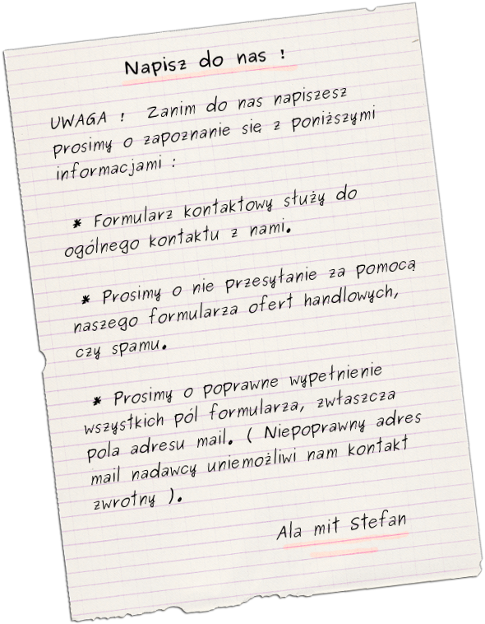 Napisz do nas !
UWAGA ! Zanim do nas napiszesz
prosimy o zapoznanie się z poniższymi
informacjami :
* Formularz kontaktowy służy do
ogólnego kontaktu z nami.
* Prosimy o nie przesyłanie za pomocą
naszego formularza ofert handlowych,
czy spamu.
* Prosimy o poprawne wypełnienie
wszystkich pól formularza, zwłaszcza
pola adresu mail. ( Niepoprawny adres
mail nadawcy uniemożliwi nam kontakt
zwrotny ).
Ala mit Stefan